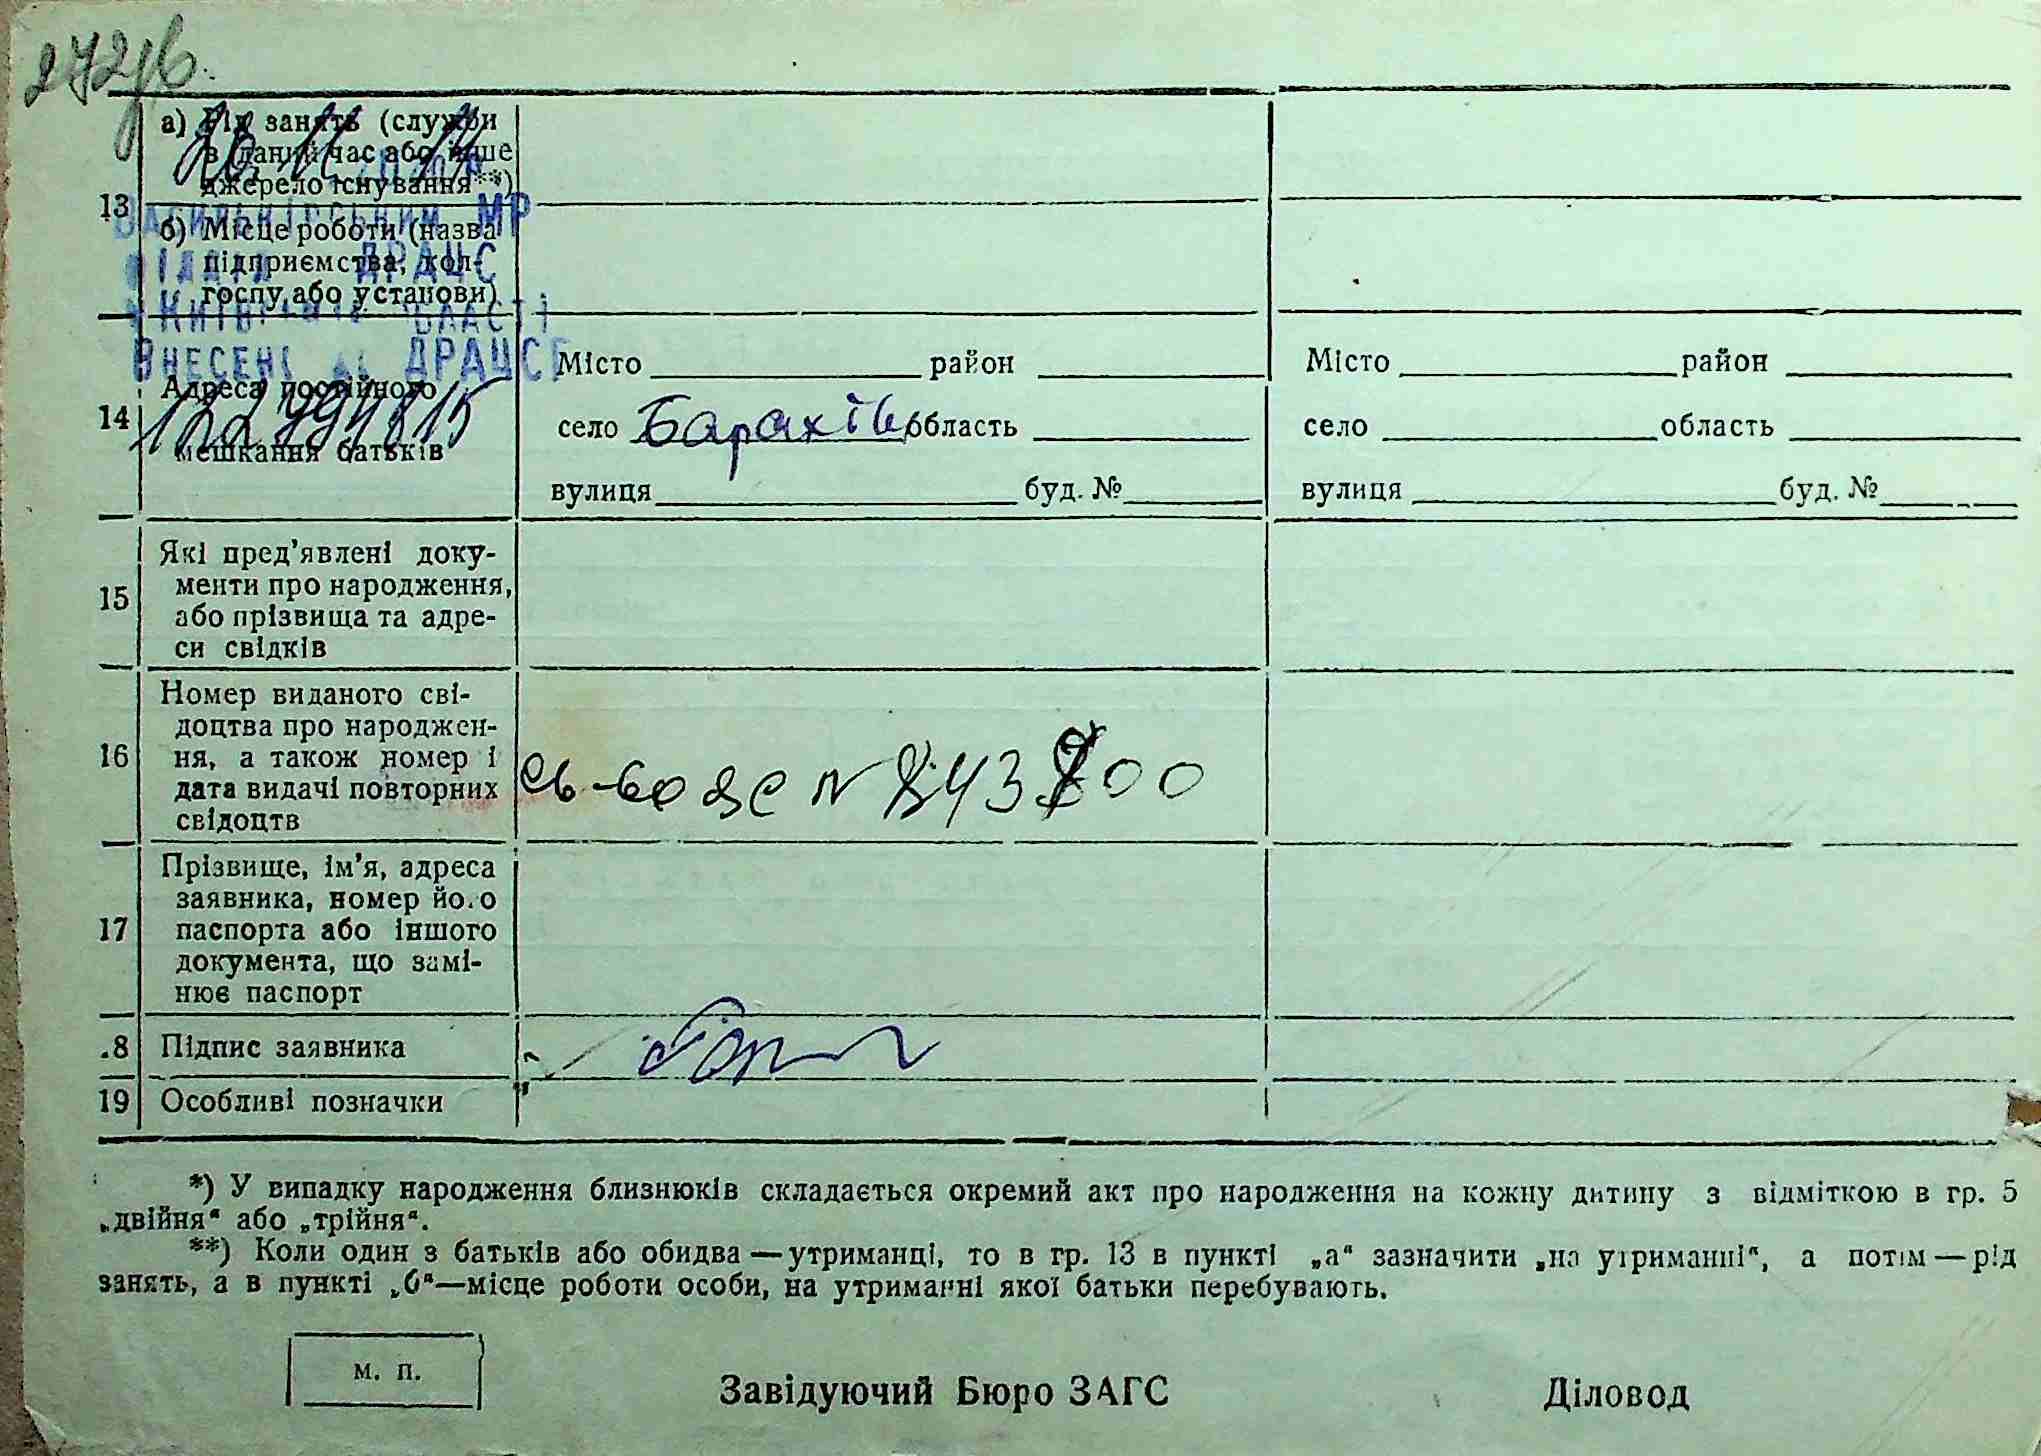 а) Рід занять (служби
в даний час або інше
джерело існування**)
13
б) Місце роботи (назва
підприємства, кол-
госпу або установи)
ВАСИЛЬКІВСЬКИМ МР
ВІДДІЛ ДРАЦС
ВНЕСЕНІ ДРАЦС
14
Адреса постійного
мешкання батьків
Місто район
село Барахтів область
вулиця буд. №
Місто район
село область
вулиця буд. №
15
Які пред'явлені доку-
менти про народження,
або прізвища та адре-
си свідків
16
Номер виданого сві-
доцтва про народжен-
ня, а також номер і
дата видачі повторних
свідоцтв
№ 843 00
17
Прізвище, ім'я, адреса
заявника, номер його
паспорта або іншого
документа, що замі-
нює паспорт
18 Підпис заявника
19 Особливі позначки
*) У випадку народження близнюків складається окремий акт про народження на кожну дитину з відміткою в гр. 5
„двійня“ або „трійня“.
**) Коли один з батьків або обидва — утриманці, то в гр. 13 в пункті „а“ зазначити „на утриманні“, а потім — рід
занять, а в пункті „б“—місце роботи особи, на утриманні якої батьки перебувають.
М. П.
Завідуючий Бюро ЗАГС
Діловод